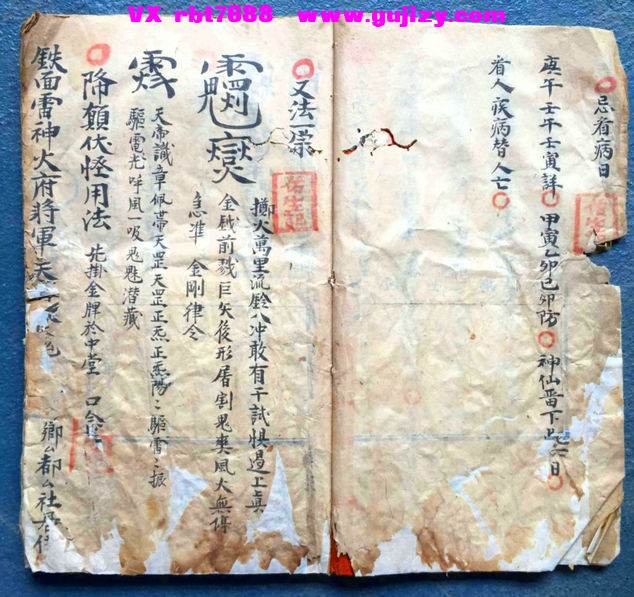 VX rbt7888 www.gujizy.com
忌看病日
庚午壬午壬寅詳 甲寅乙卯己卯防 神仙留下此六日
看人疾病替人亡
又法崇
擲火萬里流鈴八冲敢有干試惧過上眞
金鉞前戮巨矢後形屠割鬼爽風火無停
急准 金剛律令
天帝識章佩帶天罡天罡正炁正炁陽々驅雷々振
驅電光吽風一吸鬼魅潜藏
降顛伏怪用法 先掛金牌於中堂 口
鉄面雷神火府將軍天
鄉 都 社